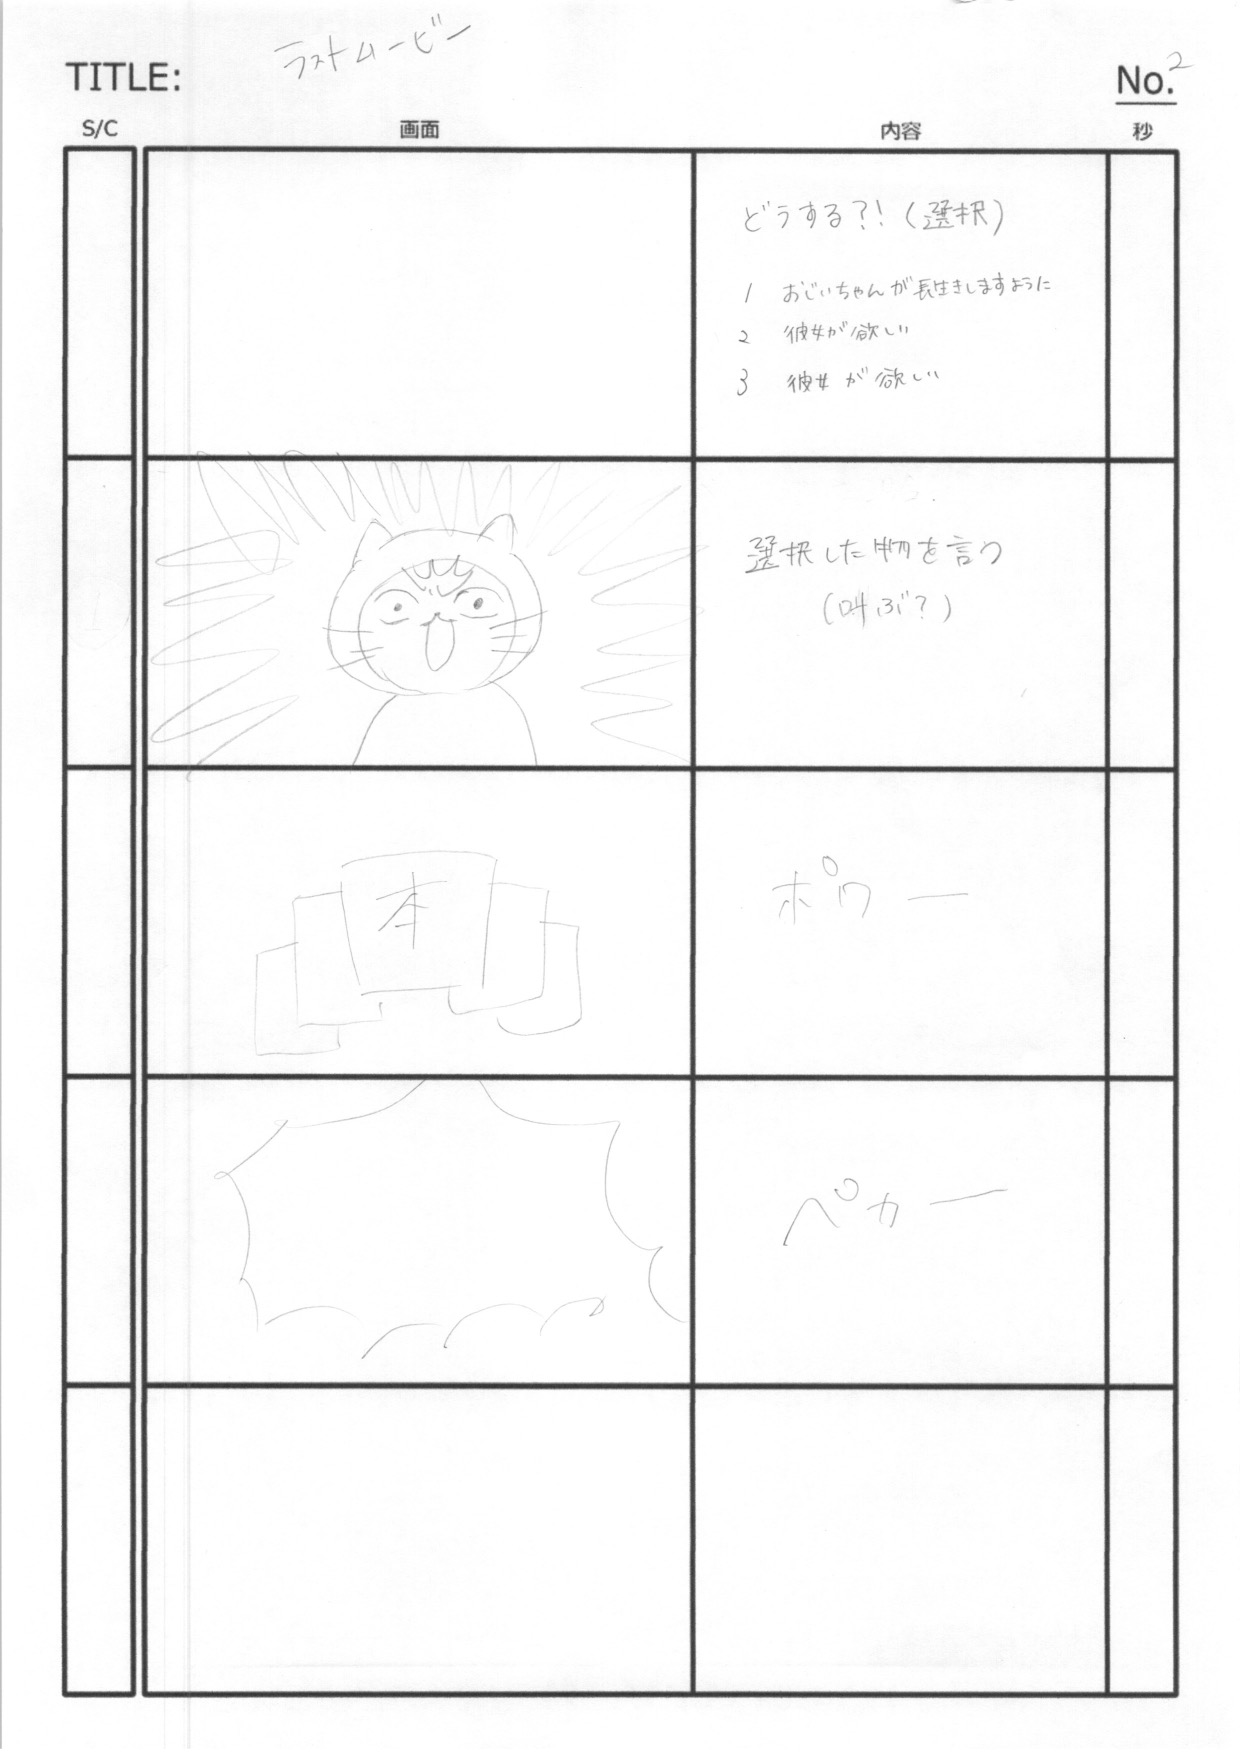 ラストムービー
TITLE:
No. 2
S/C
画面
内容
秒
どうする?!(選択)
1 おじいちゃんが長生きしますように
2 彼女が欲しい
3 彼女が欲しい
選択した物を言う
(叫ぶ?)
本
ポワー
ペカー